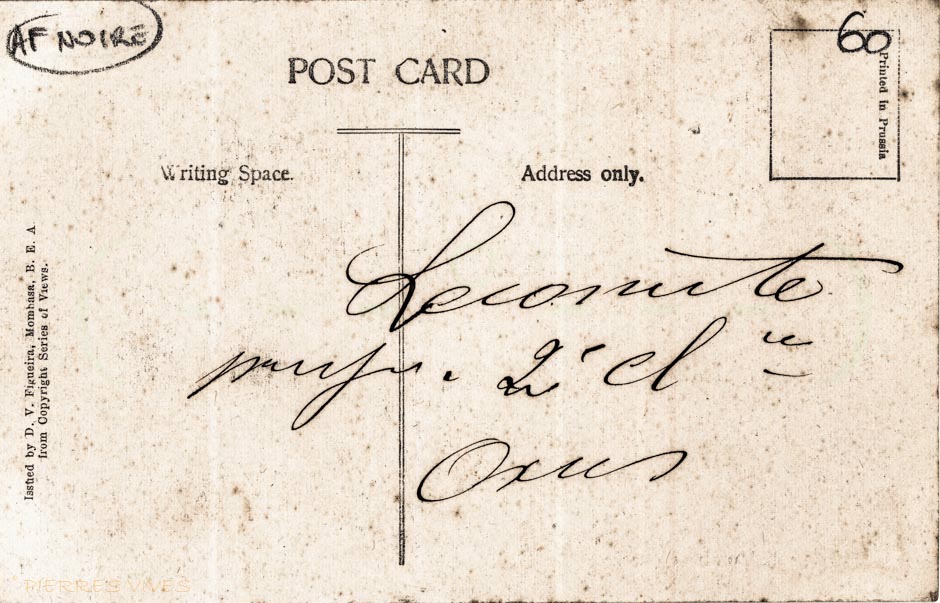 AF NOIRE
60
POST CARD
Printed in Prussia
Writing Space.
Address only.
Issued by D. V. Figueira, Mombasa, B. E. A
from Copyright Series of Views.
Lecomte
2e cl
Oxus
PIERRES VIVES